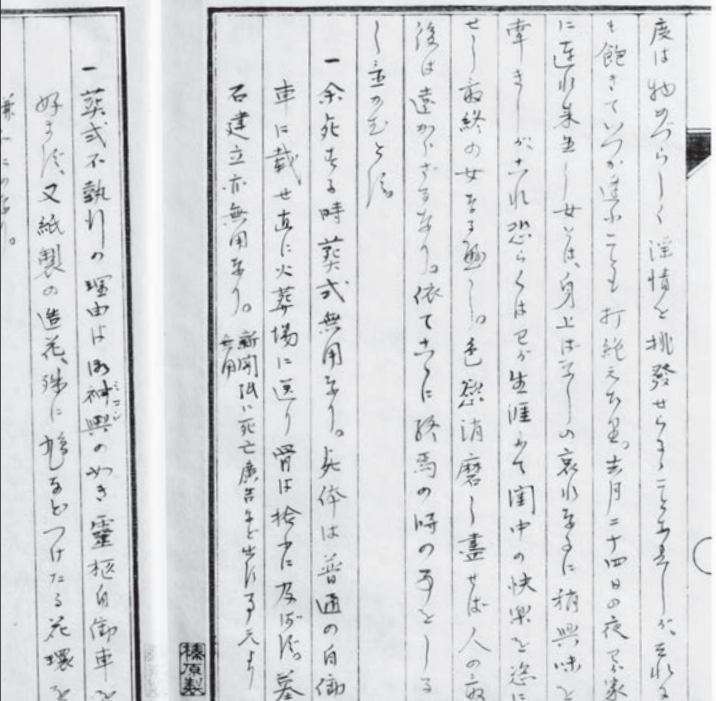 度は物めづらしく淫情を挑発せらるゝことありしが、それに
も飽きていつか遠ざかることも打絶えたり。去月二十四日の夜わが家
に連れ来りし女とは、身上ばなしの哀れなるに稍興味を
牽きしが、これ恐らくはわが生涯にて閨中の快楽を恣に
せし最終の女なる可し。色慾消磨し盡せば人の最
後は遠からざるなり。依てこゝに終焉の時の事をしる
し置かむとす。
一余死する時葬式無用なり。死体は普通の自働
車に載せ直に火葬場に送り骨は拾ふに及ばず。墓
石建立亦無用なり。新聞紙に死亡廣告など出す事元より
無用
榛原製
一葬式不執行の理由は御神輿の如き靈柩自働車を
ミコシ
好まず、又紙製の造花、殊に鳩などつけたる花環を